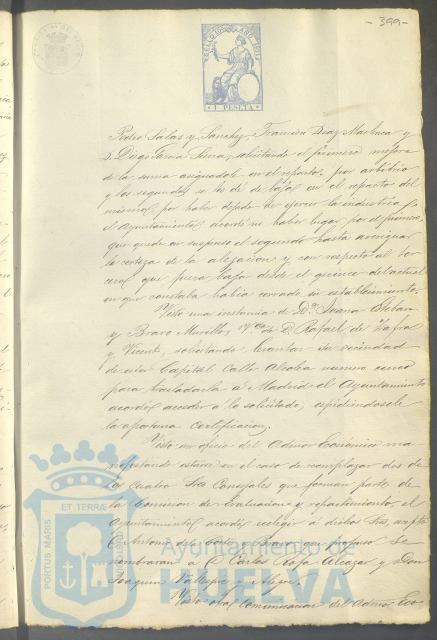 - 399 -
SELLO 11º AÑO 1871
1 PESETA
Pedro Salas y Sanchez, Francisca Diaz Martinez y
D. Diego Garcia Serra, solicitando el primero mejora
de la suma asignadole en el reparto por arbitrio
y los segundos se les dé de baja en el reparto del
mismo, por haber dejado de ejercer la industria, el
Ayuntamiento acordó no haber lugar por el primero,
que quede en suspenso el segundo hasta averiguar
la certeza de la alegacion y con respecto al ter
cero que fuera baja desde el quince del actual
en que constaba habia cerrado su establecimiento.
Visto una instancia de Dª. Juana Esteban
y Bravo Murillo, de D. Rafael de Zafra
y Vicent, solicitando levantar su vecindad
de esta Capital Calle Alcoba numero cinco
para trasladarla á Madrid el Ayuntamiento
acordó acceder á lo solicitado, espidiendosele
la oportuna certificacion.
Visto un oficio del Admor Económico ma
nifestando estar en el caso de reemplazar dos de
los cuatro Sres Concejales que forman parte de
la Comision de Evaluacion y repartimiento, el
Ayuntamiento acordó reelegir á dichos Sres, excepto
Antonio de la Corte y Bravo, en profuso se
nombraran á D. Carlos Rofa Alcazar y Don
Joaquin y
Visto otra comunicacion del Admor Eco
PORTUS MARIS
ET TERRÆ
CUSTODIA
Ayuntamiento de
HUELVA